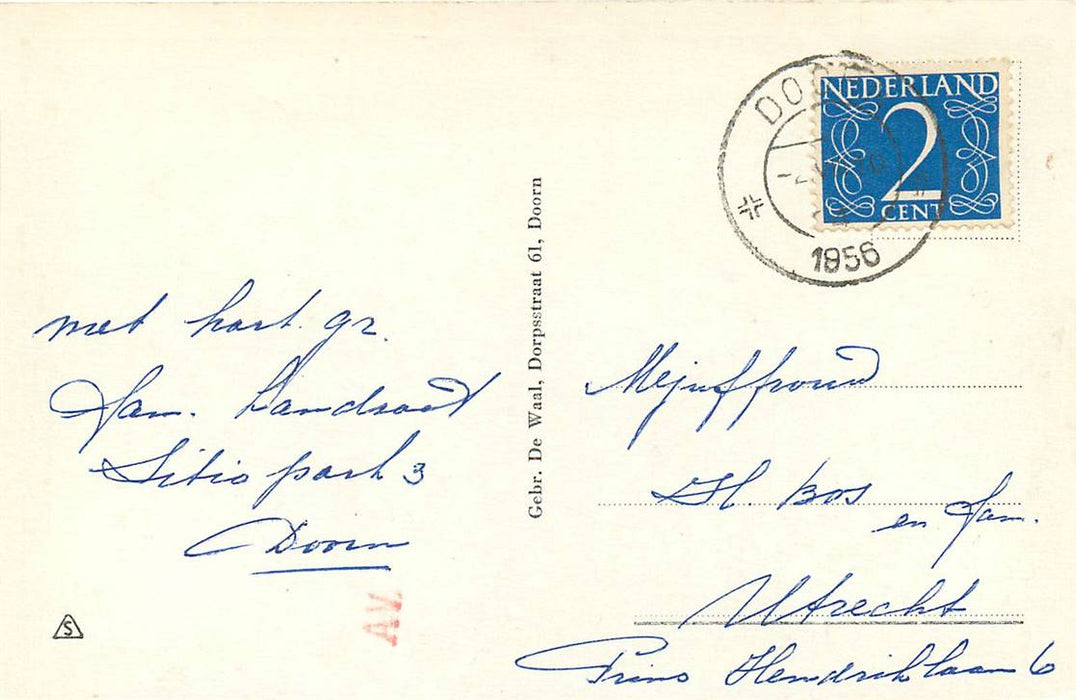 DOORN
1956
NEDERLAND
2
CENT
met hart. gr.
Fam. Landsaat
Sitio park 3
Doorn
Gebr. De Waal, Dorpsstraat 61, Doorn
Mejuffrouw
H. Bos
en Fam.
Utrecht
Prins Hendriklaan 6
AV.
S